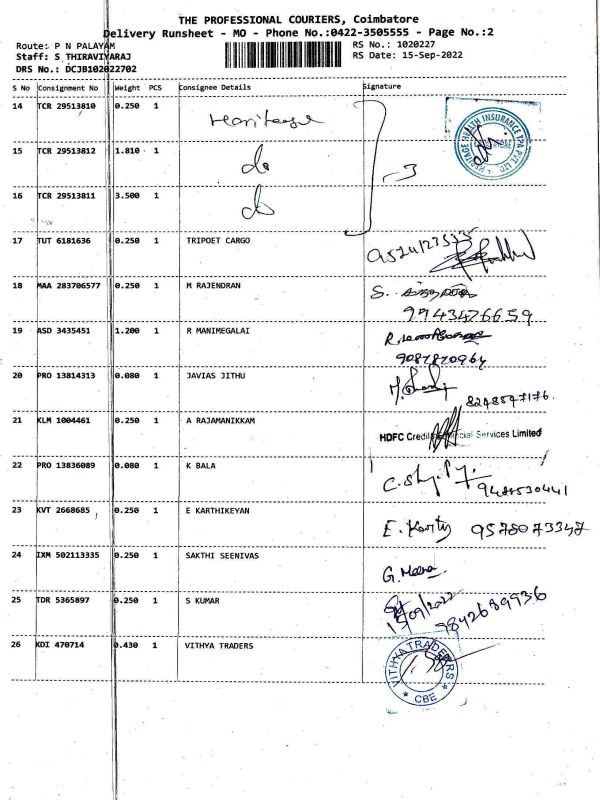 THE PROFESSIONAL COURIERS, Coimbatore
Delivery Runsheet - MO - Phone No.:0422-3505555 - Page No.:2
Route: P N PALAYAM
RS No.: 1020227
Staff: S THIRAVIYARAJ
RS Date: 15-Sep-2022
DRS No.: DCJB102022702
S No Consignment No Weight PCS Consignee Details Signature
14 TCR 29513810 0.250 1 Heritage
HERITAGE HEALTH INSURANCE TPA PVT LTD
15 TCR 29513812 1.810 1 do
3
16 TCR 29513811 3.500 1 do
17 TUT 6181636 0.250 1 TRIPOET CARGO
18 MAA 283706577 0.250 1 M RAJENDRAN S.
9743476659
19 ASD 3435451 1.200 1 R MANIMEGALAI R.
9087820964
20 PRO 13814313 0.080 1 JAVIAS JITHU
8248597176
21 KLM 1004461 0.250 1 A RAJAMANIKKAM
HDFC Credil Financial Services Limited
22 PRO 13836089 0.080 1 K BALA
23 KVT 2668685 0.250 1 E KARTHIKEYAN E. Karty 9578073347
24 IXM 502113335 0.250 1 SAKTHI SEENIVAS
G. Meena
25 TDR 5365897 0.250 1 S KUMAR
15/09/2022 9842689936
26 KDI 470714 0.430 1 VITHYA TRADERS
VITHYA TRADERS
CBE